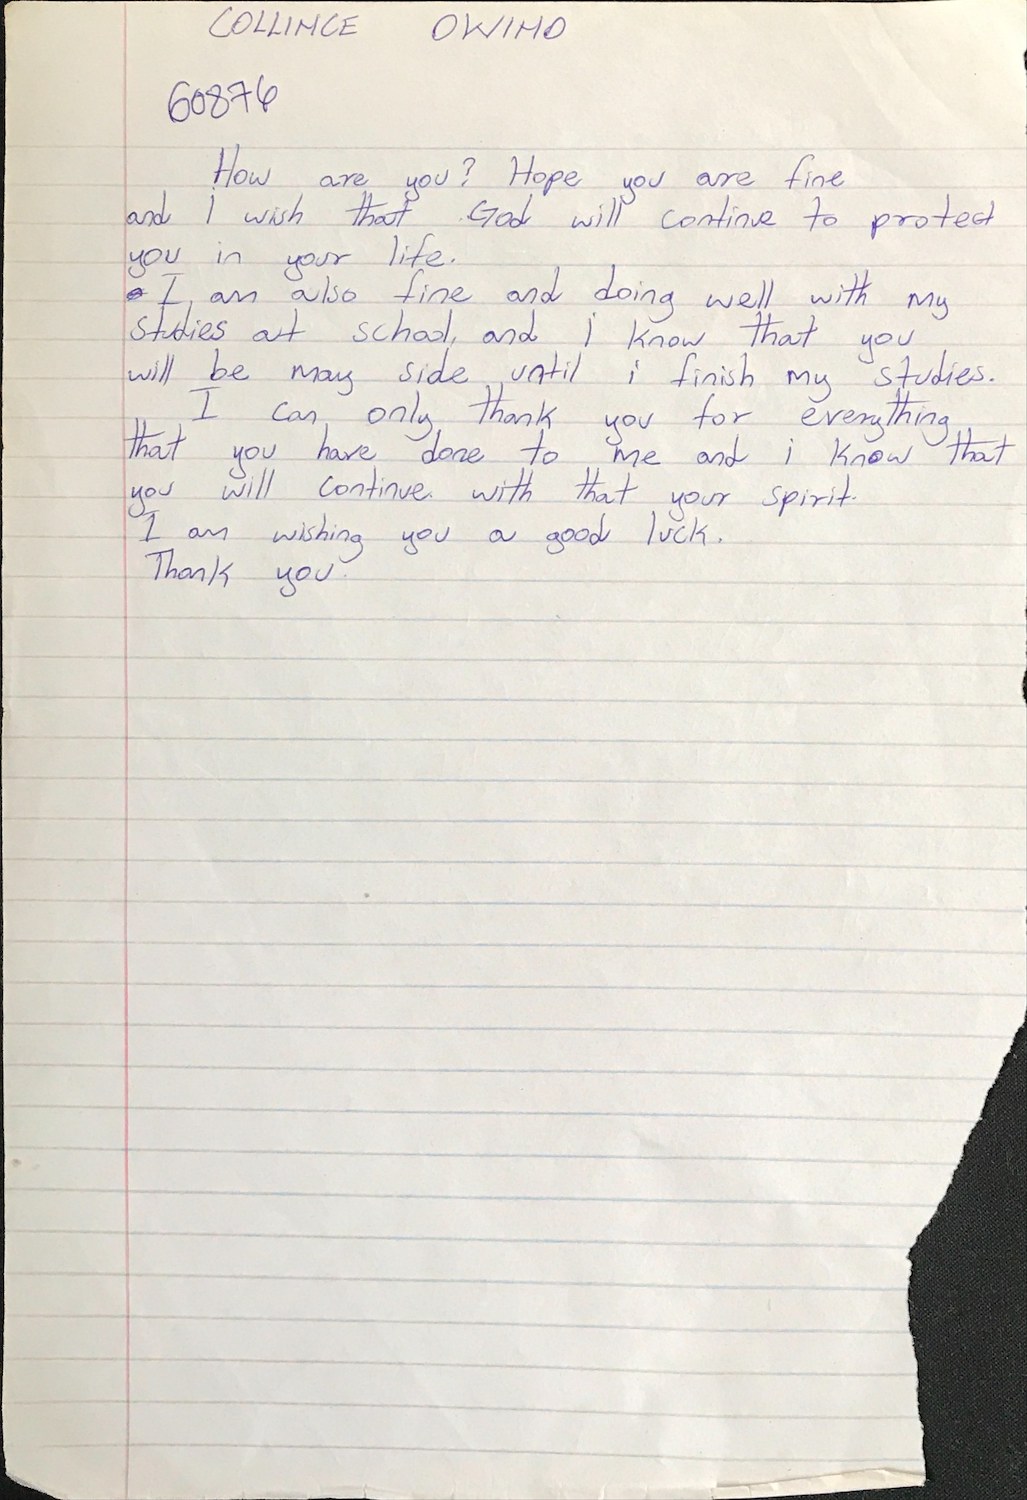 COLLINCE OWINO
60876
How are you? Hope you are fine
and I wish that God will continue to protect
you in your life.
I am also fine and doing well with my
studies at school, and i know that you
will be may side until i finish my studies.
I can only thank you for everything
that you have done to me and i know that
you will continue with that your spirit.
I am wishing you a good luck.
Thank you.